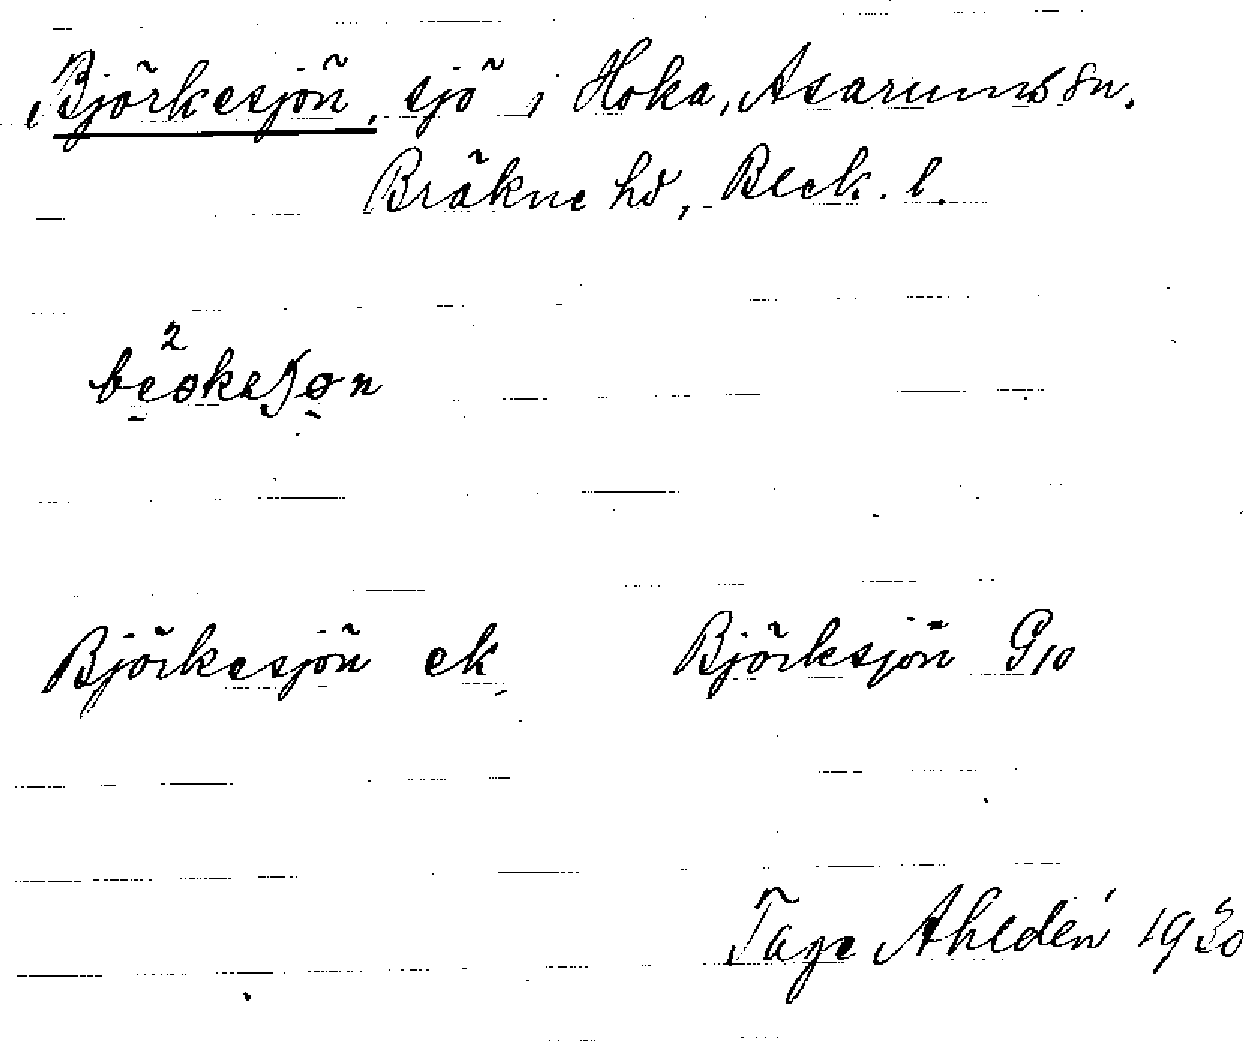 Björkesjön, sjö i Hoka, Asarums sn.
Bräkne hd, Blek. l.
Björkesjön ek Björksjön G10
Tage Ahldén 1930